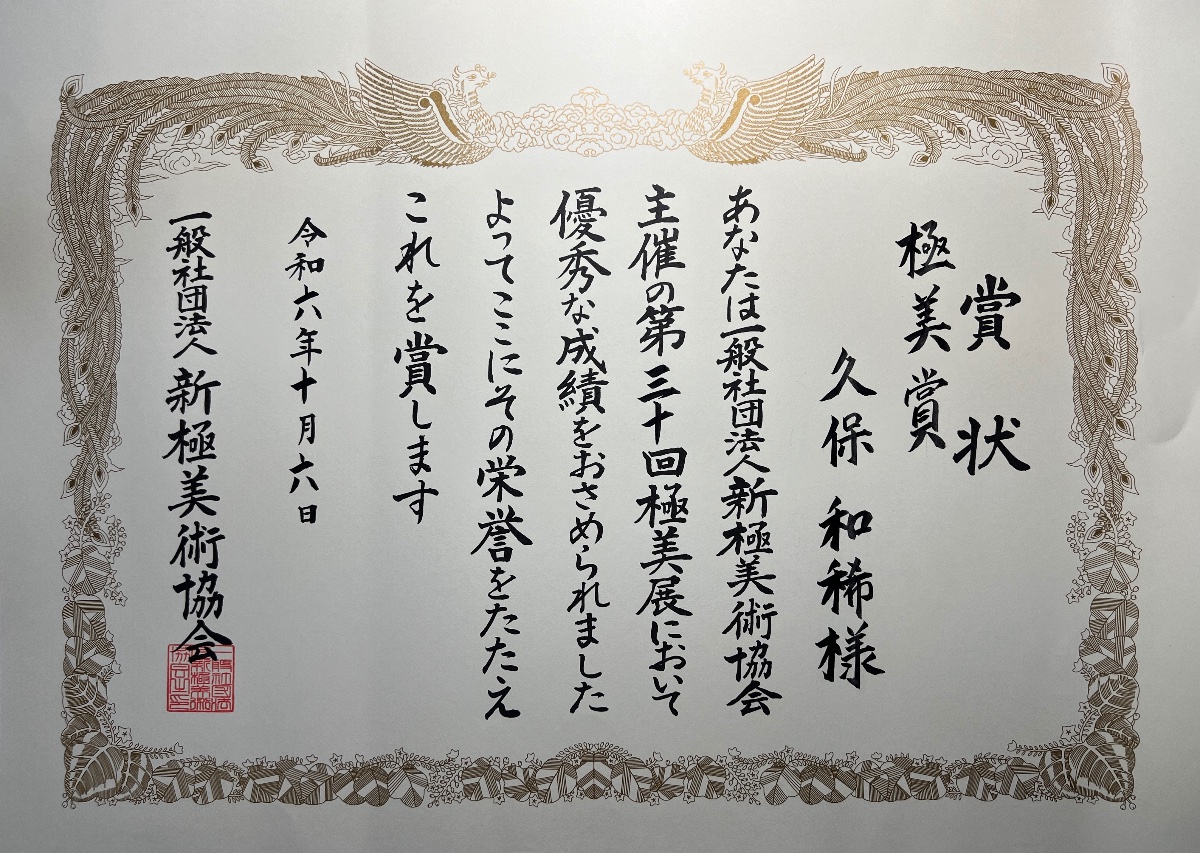 賞状
極美賞
久保和稀様
あなたは一般社団法人新極美術協会
主催の第三十回極美展において
優秀な成績をおさめられました
よってここにその栄誉をたたえ
これを賞します
令和六年十月六日
一般社団法人新極美術協会